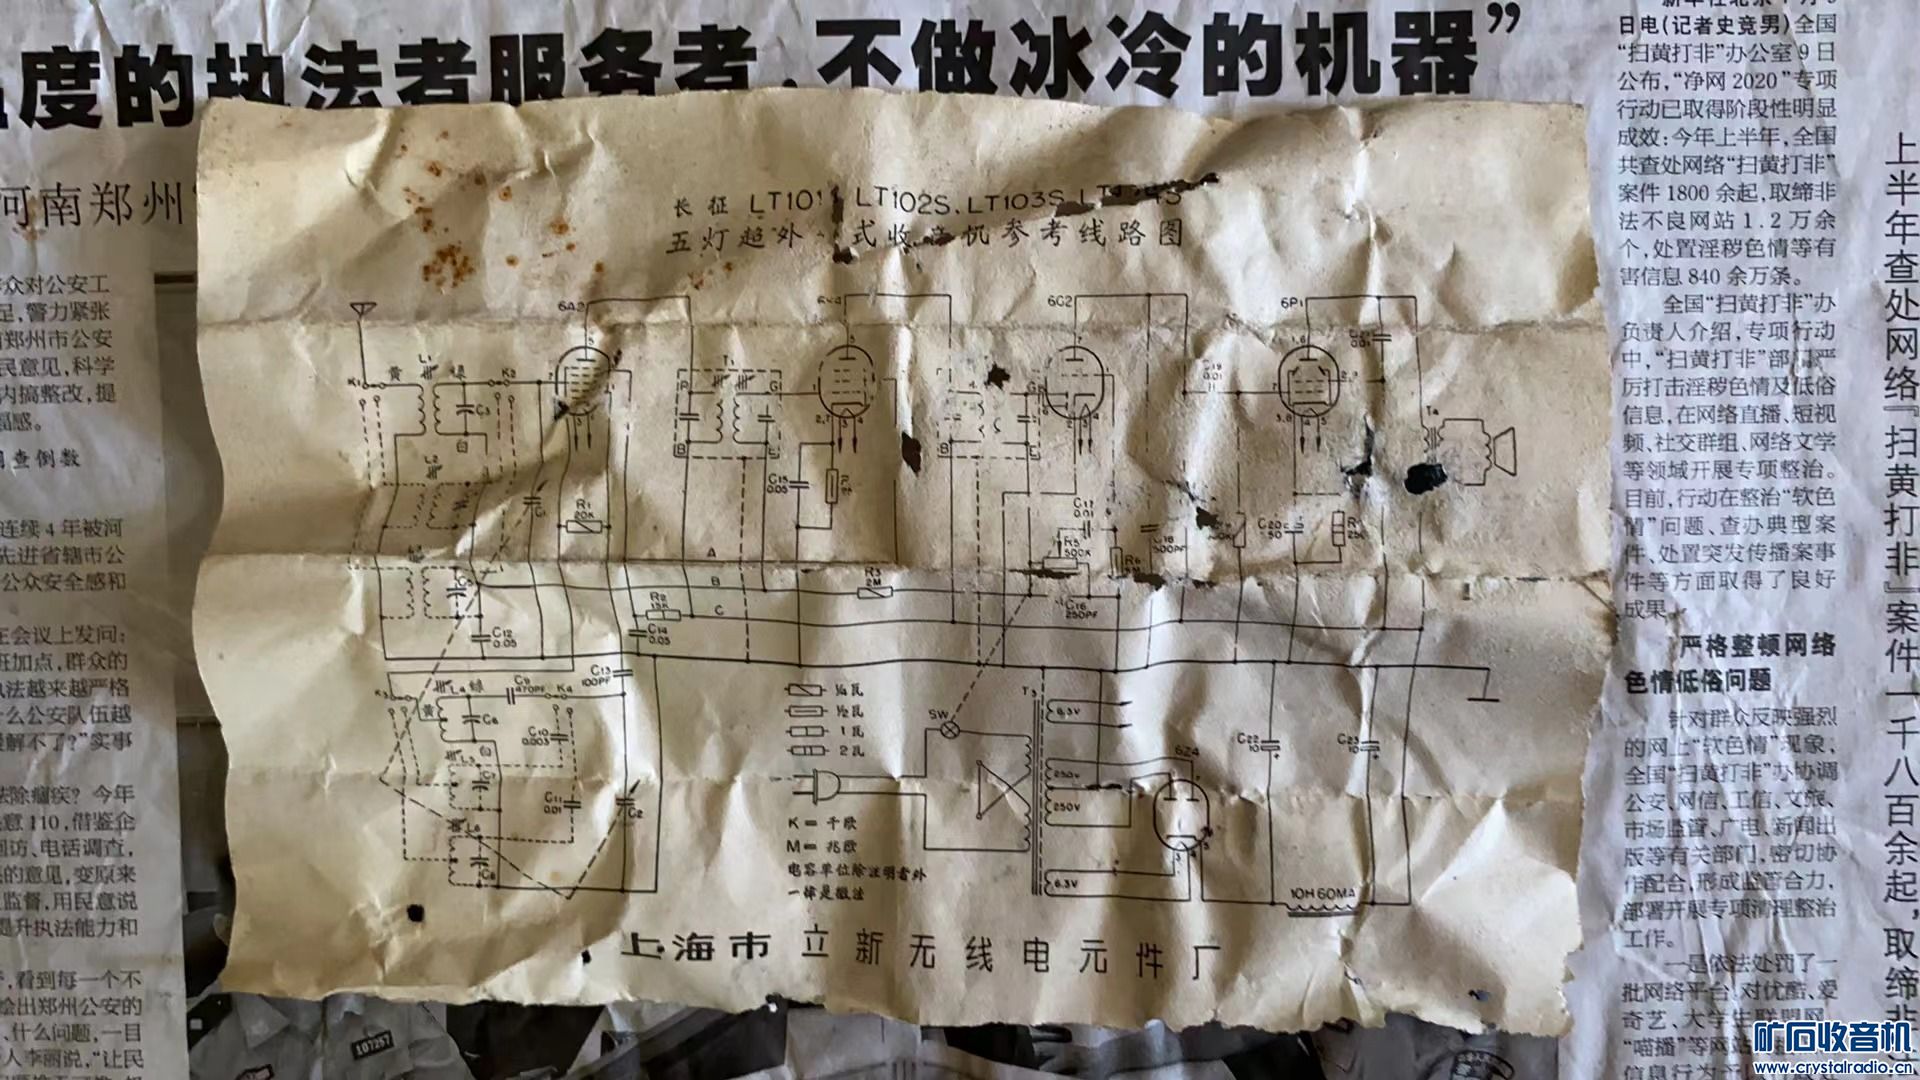 度的执法者服务者,不做冰冷的机器”
河南郑州
众对公安工
足,警力紧张
郑州市公安
民意见,科学
内搞整改,提
福感。
查倒数
连续4年被河
先进省辖市公
在会议上发问:
班加点,群众的
执法越来越严格
什么公安队伍越
理解不了?”实事
法除痼疾?今年
意110,借鉴企
回访、电话调查,
的意见,变原来
监督,用民意说
提升执法能力和
,看到每一个不
绘出郑州公安的
、什么问题,一目
人李丽说,“让民
107257
长征 LT101 LT102S、LT103S、
五灯超外 式收音机参考线路图
6A2
6G2
6P1
K1
黄
L1
绿
K2
C3
白
L2
C1
R1
20K
T1
P
G
B
C15
0.05
B
C17
0.01
R5
500K
R6
C18
500PF
C16
250PF
C19
0.01
C20
50
T4
A
B
C
R3
2M
R2
15K
C14
0.05
C12
0.05
C13
100PF
K3
L4
绿
C9
470PF
K4
黄
C6
白
C10
0.003
L5
C11
0.01
C2
L6
C8
¼瓦
½瓦
1瓦
2瓦
K=千欧
M=兆欧
电容单位除注明者外
一律是微法
SW
T3
6.3V
250V
250V
6.3V
6Z4
C22
10
C23
10
10H 60MA
上海市立新无线电元件厂
日电(记者史竞男)全国
“扫黄打非”办公室9日
公布,“净网2020”专项
行动已取得阶段性明显
成效:今年上半年,全国
共查处网络“扫黄打非”
案件1800余起,取缔非
法不良网站1.2万余
个,处置淫秽色情等有
害信息840余万条。
全国“扫黄打非”办
负责人介绍,专项行动
中,“扫黄打非”部门严
厉打击淫秽色情及低俗
信息,在网络直播、短视
频、社交群组、网络文学
等领域开展专项整治。
目前,行动在整治“软色
情”问题、查办典型案
件、处置突发传播案事
件等方面取得了良好
成果。
严格整顿网络
色情低俗问题
针对群众反映强烈
的网上“软色情”现象,
全国“扫黄打非”办协调
公安、网信、工信、文旅、
市场监管、广电、新闻出
版等有关部门,密切协
作配合,形成监管合力,
部署开展专项清理整治
工作。
一是依法处罚了一
批网络平台。对优酷、爱
奇艺、大学生联盟网、
“喵播”等网站
上半年查处网络『扫黄打非』案件一千八百余起,取缔非
矿石收音机
www.crystalradio.cn